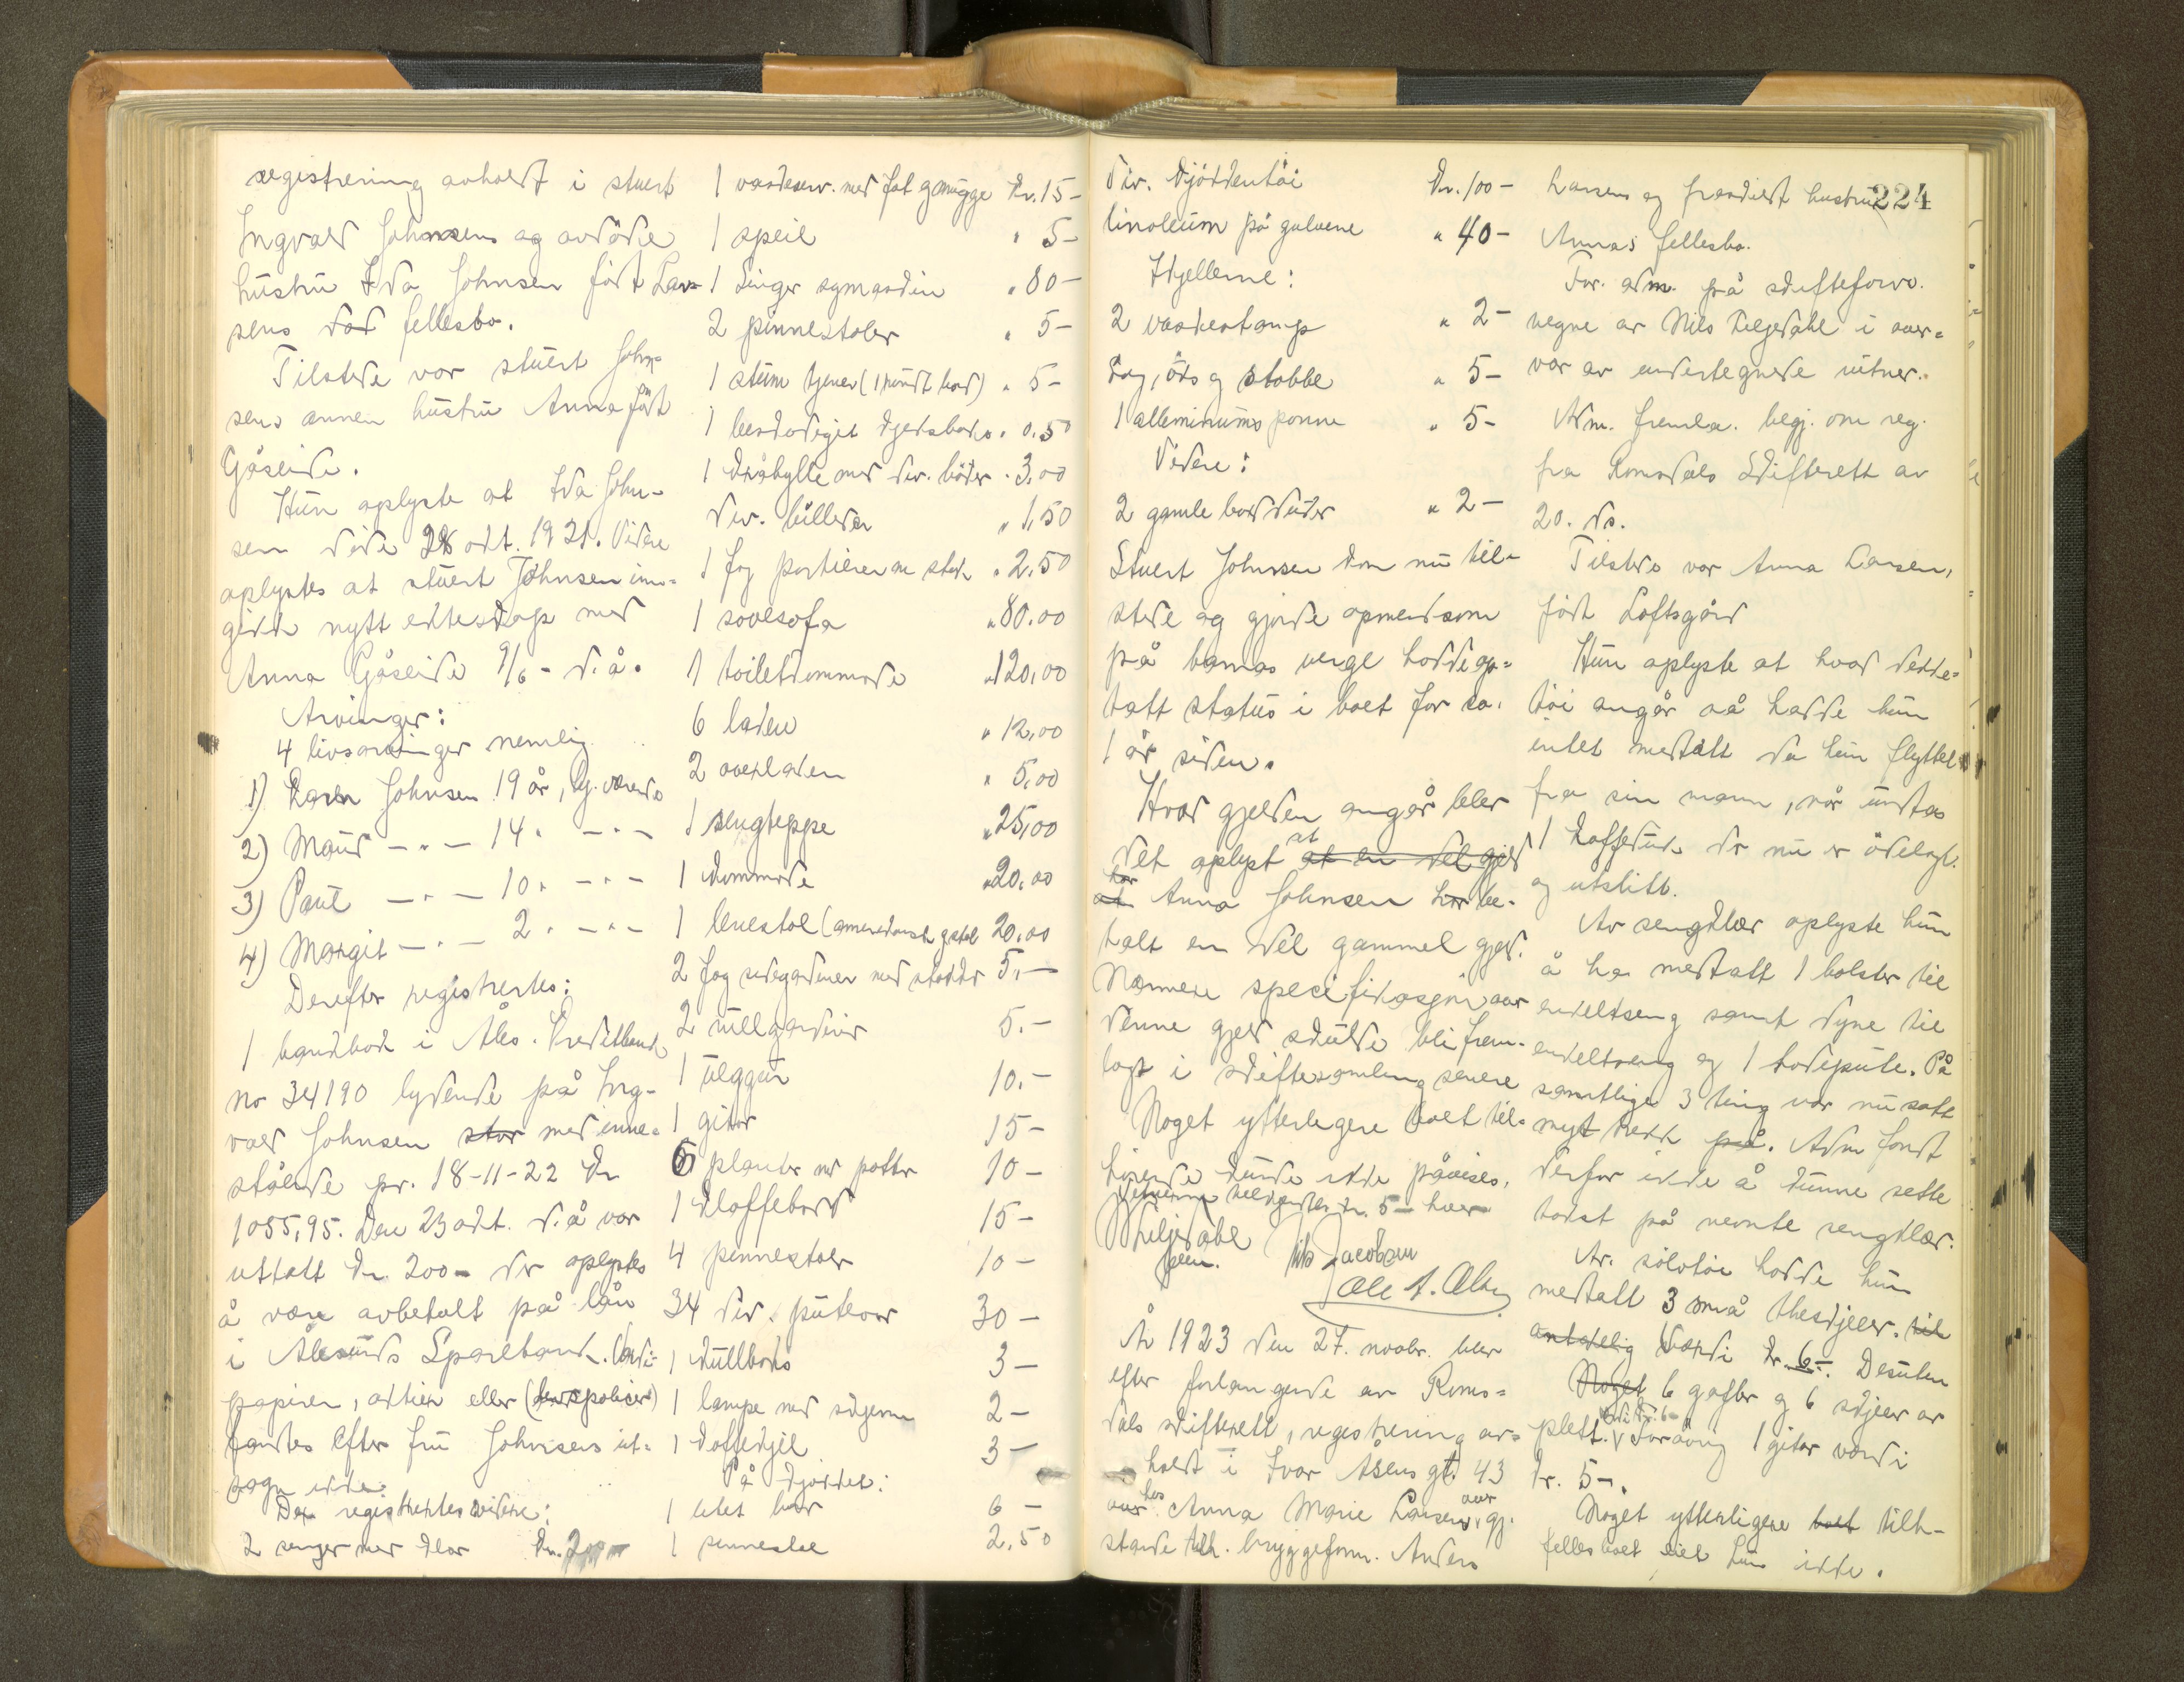 registrering avholdt i stuert
Ingvald Johnsens og avdöde
hustru Ida Johnsen född Lar=
sens död fellesbo.
Tilstede var stuert John=
sens annen hustru Anna född
Gåseide.
Hun oplyste at Ida John-
sen döde 28 okt. 1921. Videre
oplystes at stuert Johnsen inn=
gikk nytt ekteskap med
Anna Gåseide 9/6 - d.å.
Arvinger:
4 livsarvinger nemlig
1) Karen Johnsen 19 år, hj. værende
2) Maud -"- 14 " -"-
3) Paul -"- 10 " -"-
4) Margit -"- 2 " -"-
Derefter registrertes:
1 bankbok i Åles. Kreditbank
no 34190 lydende på Ing-
vald Johnsen stor med inne=
stående pr. 18-11-22 kr
1055,95. Den 23 okt. d.å var
uttatt kr. 200- der oplystes
å være avbetalt på lån
i Ålesunds Sparebank. Verdi=
papirer, aktier eller (livspoliser)
fandtes efter fru Johnsens ut=
sagn ikke.
Der registrertes videre:
2 senger med klær kr. 200-
1 vaskeserv. med fat g mugge kr. 15-
1 speil " 5-
1 Singer symaskin " 80-
2 pinnestoler " 5-
1 stum tjener (1 rundt bord) " 5-
1 beskadiget skjenkbord " 0.50
1 kråhylle med div. böker " 3,00
div. billeder " 1,50
1 fag portierer m stok " 2,50
1 sovesofa " 80.00
1 toiletkommode " 120,00
6 laken " 12,00
2 overlaken " 5,00
1 sengteppe " 25,00
1 kommode " 20,00
1 lenestol (amerikansk gstol 20,00
2 fag sidegardiner med stokker 5,-
2 rullgardiner 5.-
1 veggur 10.-
1 gitar 15-
6 planter med potter 10-
1 kloffebord 15-
4 pinnestoler 10-
34 div. putevar 30-
1 kullboks 3-
1 lampe med skjerm 2-
1 koffekjel 3-
På kjökket:
1 litet bord 6-
1 pinnestol 2,50
Div. kjökkentöi kr. 100-
linoleum på gulvene " 40-
I kjelleren:
2 vaskestamp " 2-
Sag, öks og stabbe " 5-
1 alleminiums panne " 5-
Videre:
2 gamle bordduker " 2-
Stuert Johnsen kom nu til-
stede og gjorde opmerksom
på barnas verge hadde op=
tatt status i boet for ca.
1 år siden.
Hvad gjelden angår blev
det oplyst at at en del gjeld
at har Anna Johnsen har be-
talt en del gammel gjeld.
Nærmere specifikasjon over
denne gjeld skulde bli frem-
lagt i skiftesamling senere
Noget ytterligere boet til=
hörende kunde ikke påvises.
Vidnerne tilkjendes kr. 5- hver
Kiljedahl
Nils Jacobsen
Ole A. Alnes
År 1923 den 27. novbr. blev
efter forlangende av Roms=
dals skifterett, registrering av=
holdt i Ivar Åsens gt. 43
over hos Anna Marie Larsens, over gj.
stande tilh. bryggeform. Anders
224
Larsens og fraskildt hustru
Annas fellesbo.
For. adm. på skifteforv.
vegne av Nils Kiljedahl i over=
vær av undertegnede vitner.
Adm. fremla. begj. om reg.
fra Romsdals Skifterett av
20. ds.
Tilstede var Anna Larsen,
född Loftsgård
Hun oplyste at hvad dekke=
töi angår så hadde hun
intet medtatt da hun flyttet
fra sin mann, når untas
1 kaffeduk der nu er ödelagt
og utslitt.
Av sengklær oplyste hun
å ha medtatt 1 bolster til
enkeltseng samt dyne til
enkeltseng og 1 hodepute. På
samtlige 3 ting var nu satt
nytt trekk på. Adm fandt
derfor ikke å kunne sette
takst på nevnte sengklær.
Av sölvtöi hadde hun
medtatt 3 små theskjeer. til
antakelig Verdi kr. 6-. Desuten
Noget 6 gafler og 6 skjeer av
plett. verdi kr. 6- Forövrig 1 gitar verdi
kr. 5-.
Noget ytterligere boet tilh-
fellesboet eiet hun ikke.